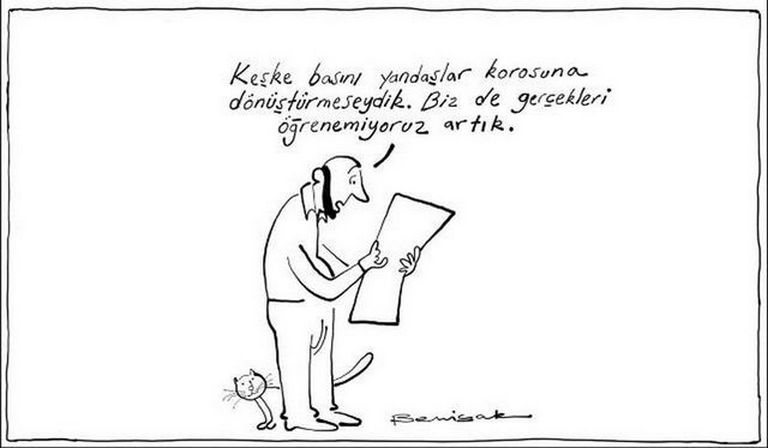 Keşke basını yandaşlar korosuna
dönüştürmeseydik. Biz de gerçekleri
öğrenemiyoruz artık.
Behiçak